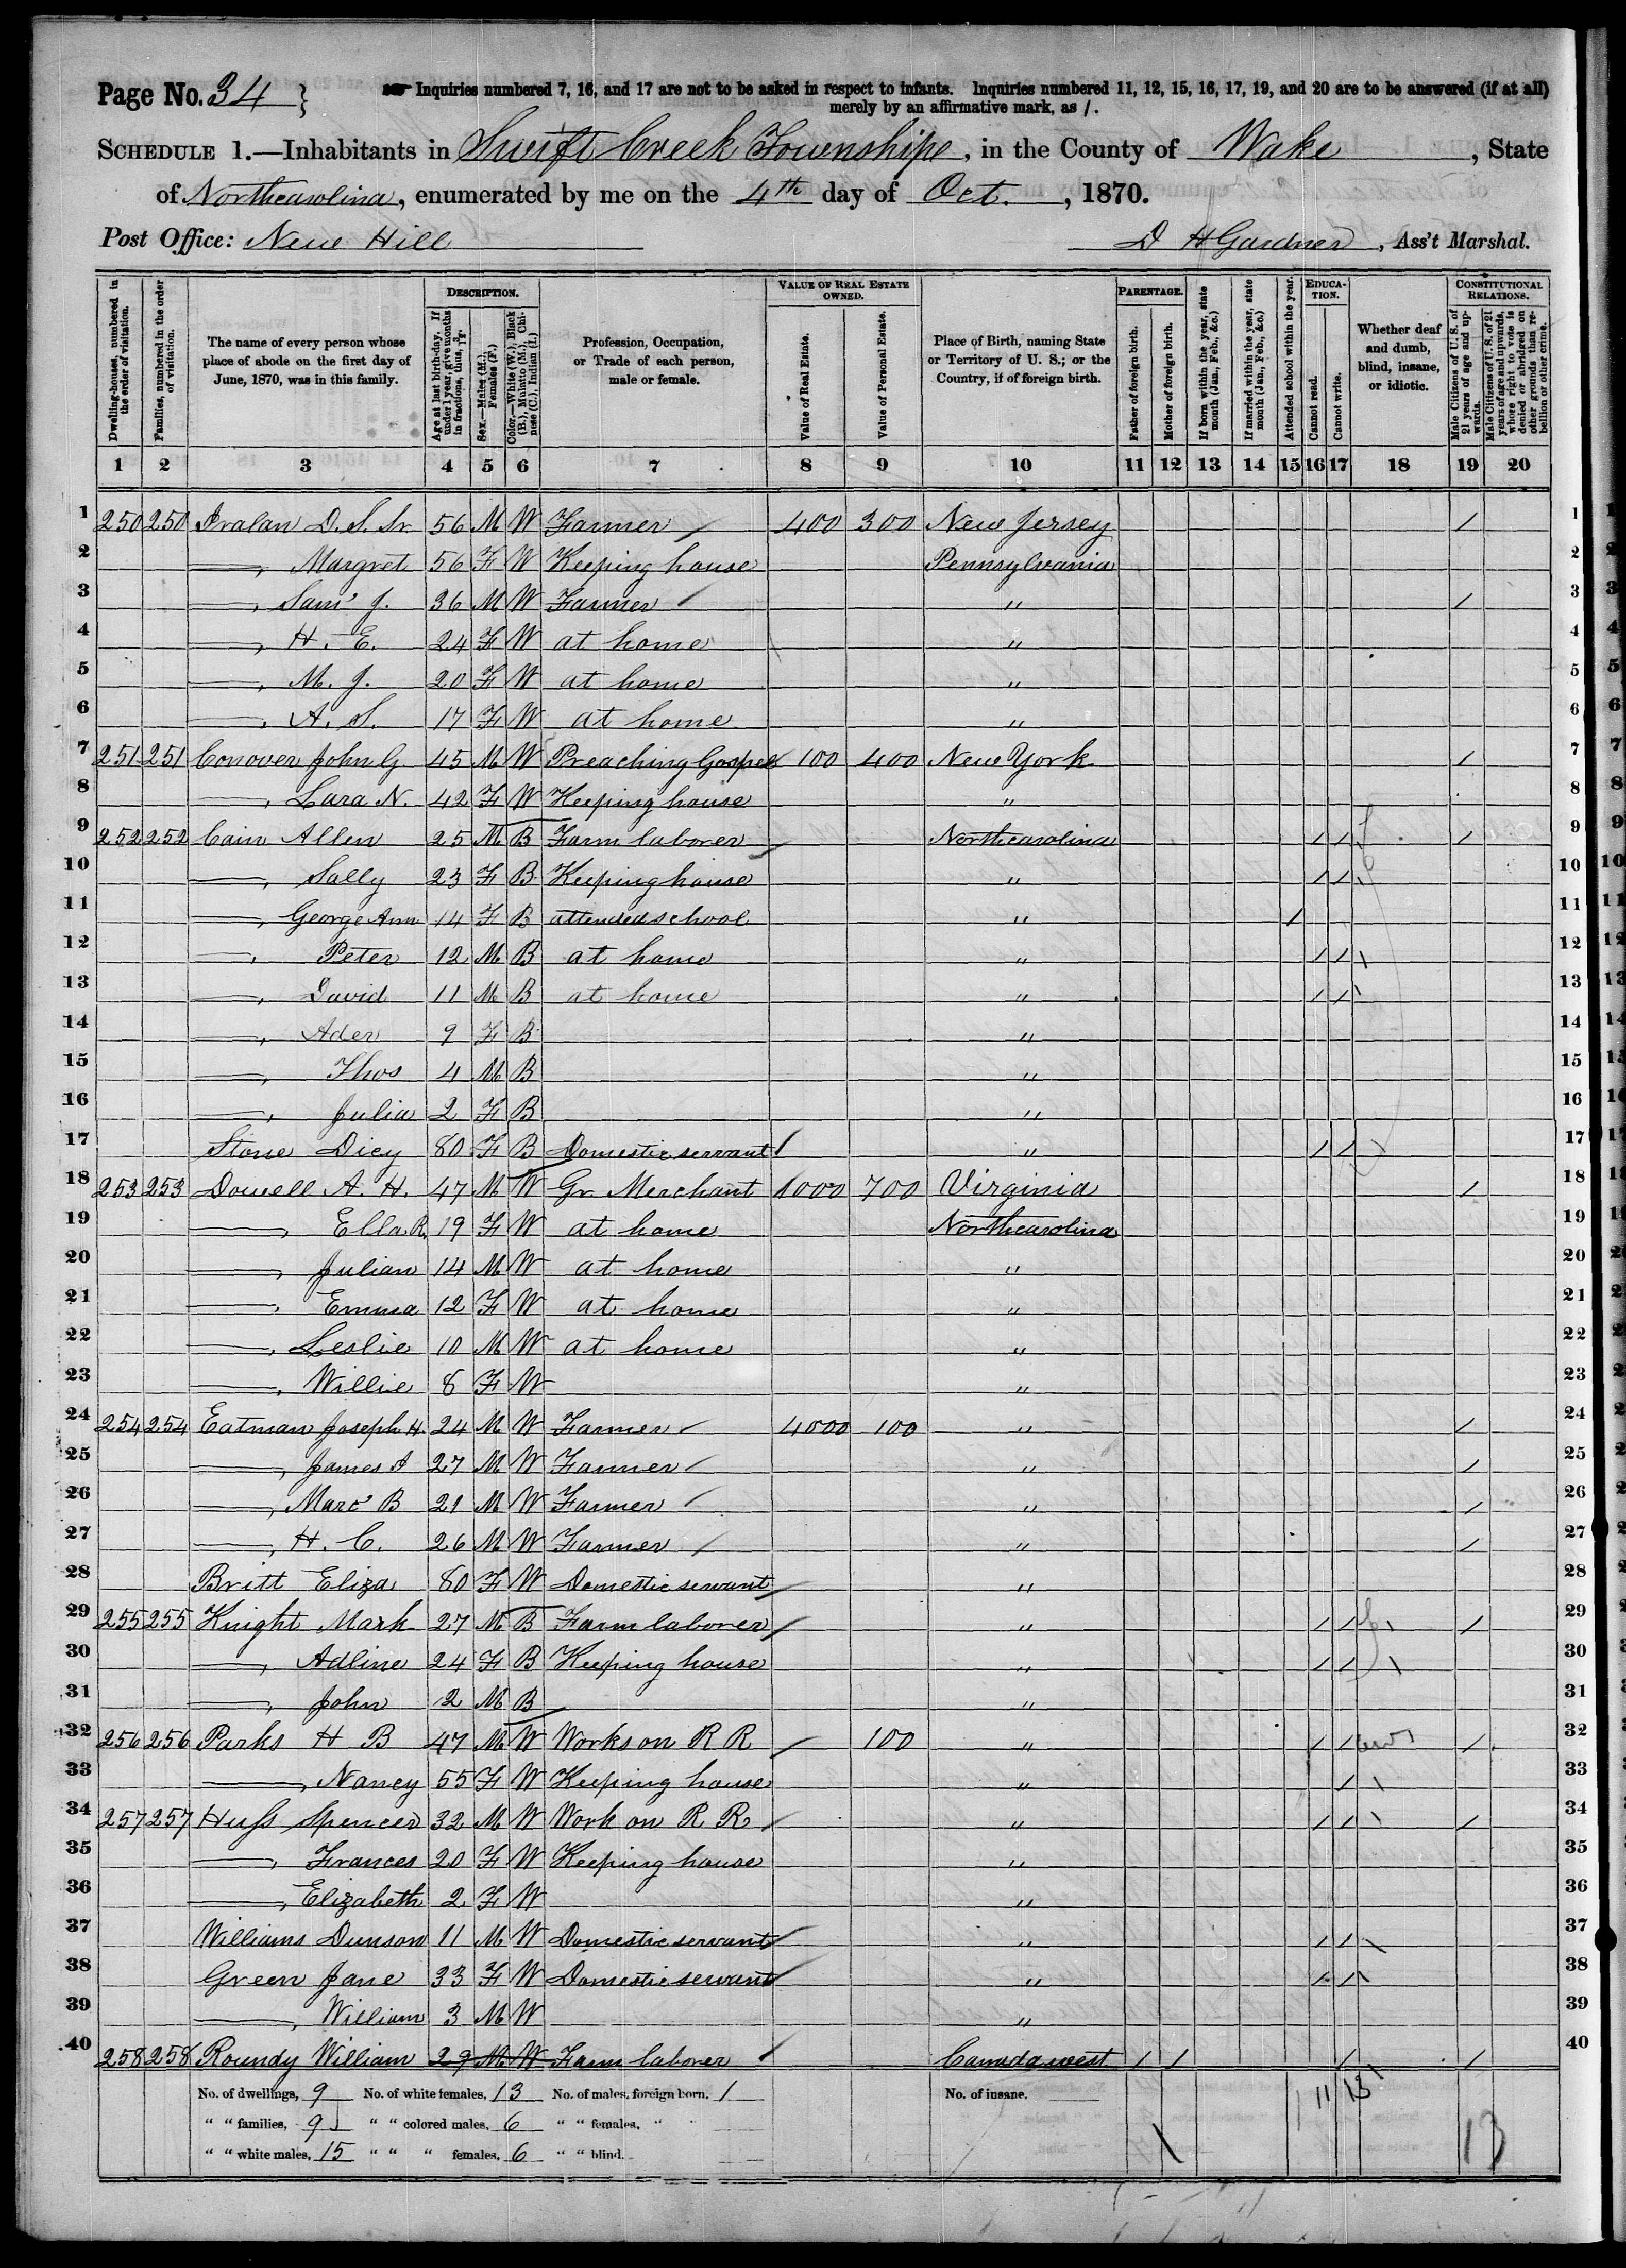 Page No. 34 } Inquiries numbered 7, 16, and 17 are not to be asked in respect to infants. Inquiries numbered 11, 12, 15, 16, 17, 19, and 20 are to be answered (if at all)
merely by an affirmative mark, as /.
SCHEDULE 1.—Inhabitants in Swift Creek Townshipe, in the County of Wake, State
of Northcarolina, enumerated by me on the 4th day of Oct., 1870.
Post Office: New Hill D H Gardner, Ass't Marshal.
Dwelling-houses, numbered in the order of visitation.
Families, numbered in the order of visitation.
The name of every person whose place of abode on the first day of June, 1870, was in this family.
DESCRIPTION.
Age at last birth-day. If under 1 year, give months in fractions, thus, 3/12.
Sex.—Males (M.), Females (F.)
Color.—White (W.), Black (B.), Mulatto (M.), Chinese (C.), Indian (I.)
Profession, Occupation, or Trade of each person, male or female.
VALUE OF REAL ESTATE OWNED.
Value of Real Estate.
Value of Personal Estate.
Place of Birth, naming State or Territory of U. S.; or the Country, if of foreign birth.
PARENTAGE.
Father of foreign birth.
Mother of foreign birth.
If born within the year, state month (Jan., Feb., &c.)
If married within the year, state month (Jan., Feb., &c.)
Attended school within the year.
EDUCATION.
Cannot read.
Cannot write.
Whether deaf and dumb, blind, insane, or idiotic.
CONSTITUTIONAL RELATIONS.
Male Citizens of U. S. of 21 years of age and upwards.
Male Citizens of U. S. of 21 years of age and upwards, whose right to vote is denied or abridged on other grounds than rebellion or other crime.
1 2 3 4 5 6 7 8 9 10 11 12 13 14 15 16 17 18 19 20
1 250 250 D. S. Sr. 56 M W Farmer / 400 300 New Jersey / 1
2 —, Margret 56 F W Keeping house Pennsylvania 2
3 —, Sam' J. 36 M W Farmer / " / 3
4 —, H. E. 24 F W at home " 4
5 —, M. J. 20 F W at home " 5
6 —, A. S. 17 F W at home " 6
7 251 251 Conover John G 45 M W Preaching Gospel 100 400 New York / 7
8 —, Lara N. 42 F W Keeping house " 8
9 252 252 Cain Allen 25 M B Farm laborer / Northcarolina / / / 9
10 —, Sally 23 F B Keeping house " / / 10
11 —, George Ann 14 F B attended school " / 11
12 —, Peter 12 M B at home " / / 12
13 —, David 11 M B at home " / / 13
14 —, Ader 9 F B " 14
15 —, Thos 4 M B " 15
16 —, Julia 2 F B " 16
17 Stone Dicy 80 F B Domestic servant / " / / 17
18 253 253 Dowell A. H. 47 M W Gr. Merchant 1000 700 Virginia / 18
19 —, Ella R. 19 F W at home Northcarolina 19
20 —, Julian 14 M W at home " 20
21 —, Emma 12 F W at home " 21
22 —, Leslie 10 M W at home " 22
23 —, Willie 8 F W " 23
24 254 254 Eatman Joseph H. 24 M W Farmer / 4000 100 " / 24
25 —, James A 27 M W Farmer / " / 25
26 —, Marc' B 21 M W Farmer / " / 26
27 —, H. C. 26 M W Farmer / " / 27
28 Britt Eliza 80 F W Domestic servant / " 28
29 255 255 Knight Mark 27 M B Farm laborer / " / / / 29
30 —, Adline 24 F B Keeping house " / / 30
31 —, John 2 M B " 31
32 256 256 Parks H B 47 M W Works on R R / 100 " / / / 32
33 —, Nancy 55 F W Keeping house " / 33
34 257 257 Huss Spencer 32 M W Work on R R / " / / / 34
35 —, Frances 20 F W Keeping house " 35
36 —, Elizabeth 2 F W " 36
37 Williams Dunson 11 M W Domestic servant / " / / 37
38 Green Jane 33 F W Domestic servant / " / / 38
39 —, William 3 M W " 39
40 258 258 Roundy William 29 M W Farm laborer / Canada west / / / / 40
No. of dwellings, 9 No. of white females, 13 No. of males, foreign born, 1 No. of insane, 11 13
" " families, 9 " " colored males, 6 " " females, "
" " white males, 15 " " " females, 6 " " blind, 13